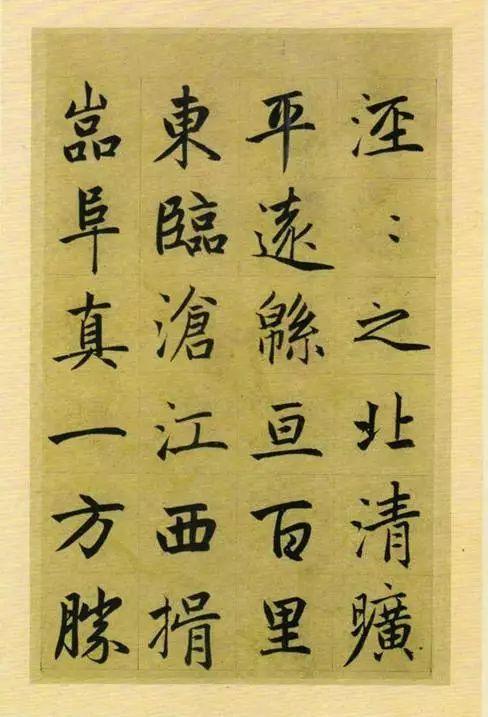 涇〻之北清曠
平遠緜亘百里
東臨滄江西揖
嵒阜真一方勝